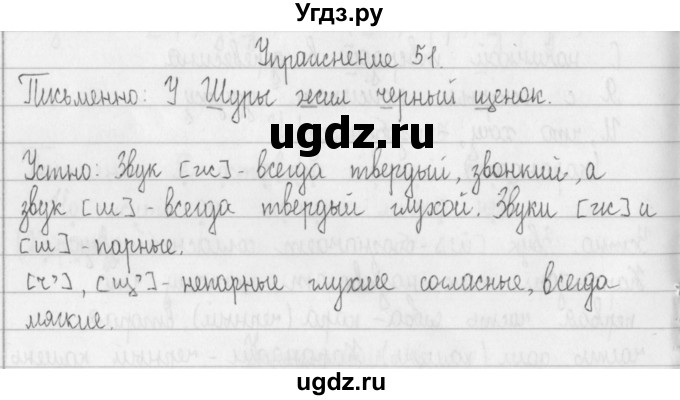 Угдз.ру
Упражнение 51.
Письменно: У Шуры жил черный щенок.
ugdz.ru
Устно: Звук [ж] - всегда твердый, звонкий, а
звук [ш] - всегда твердый глухой. Звуки [ж] и
[ш] - парные.
[ч'], [щ'] - непарные глухие согласные, всегда
мягкие.
ugdz.ru